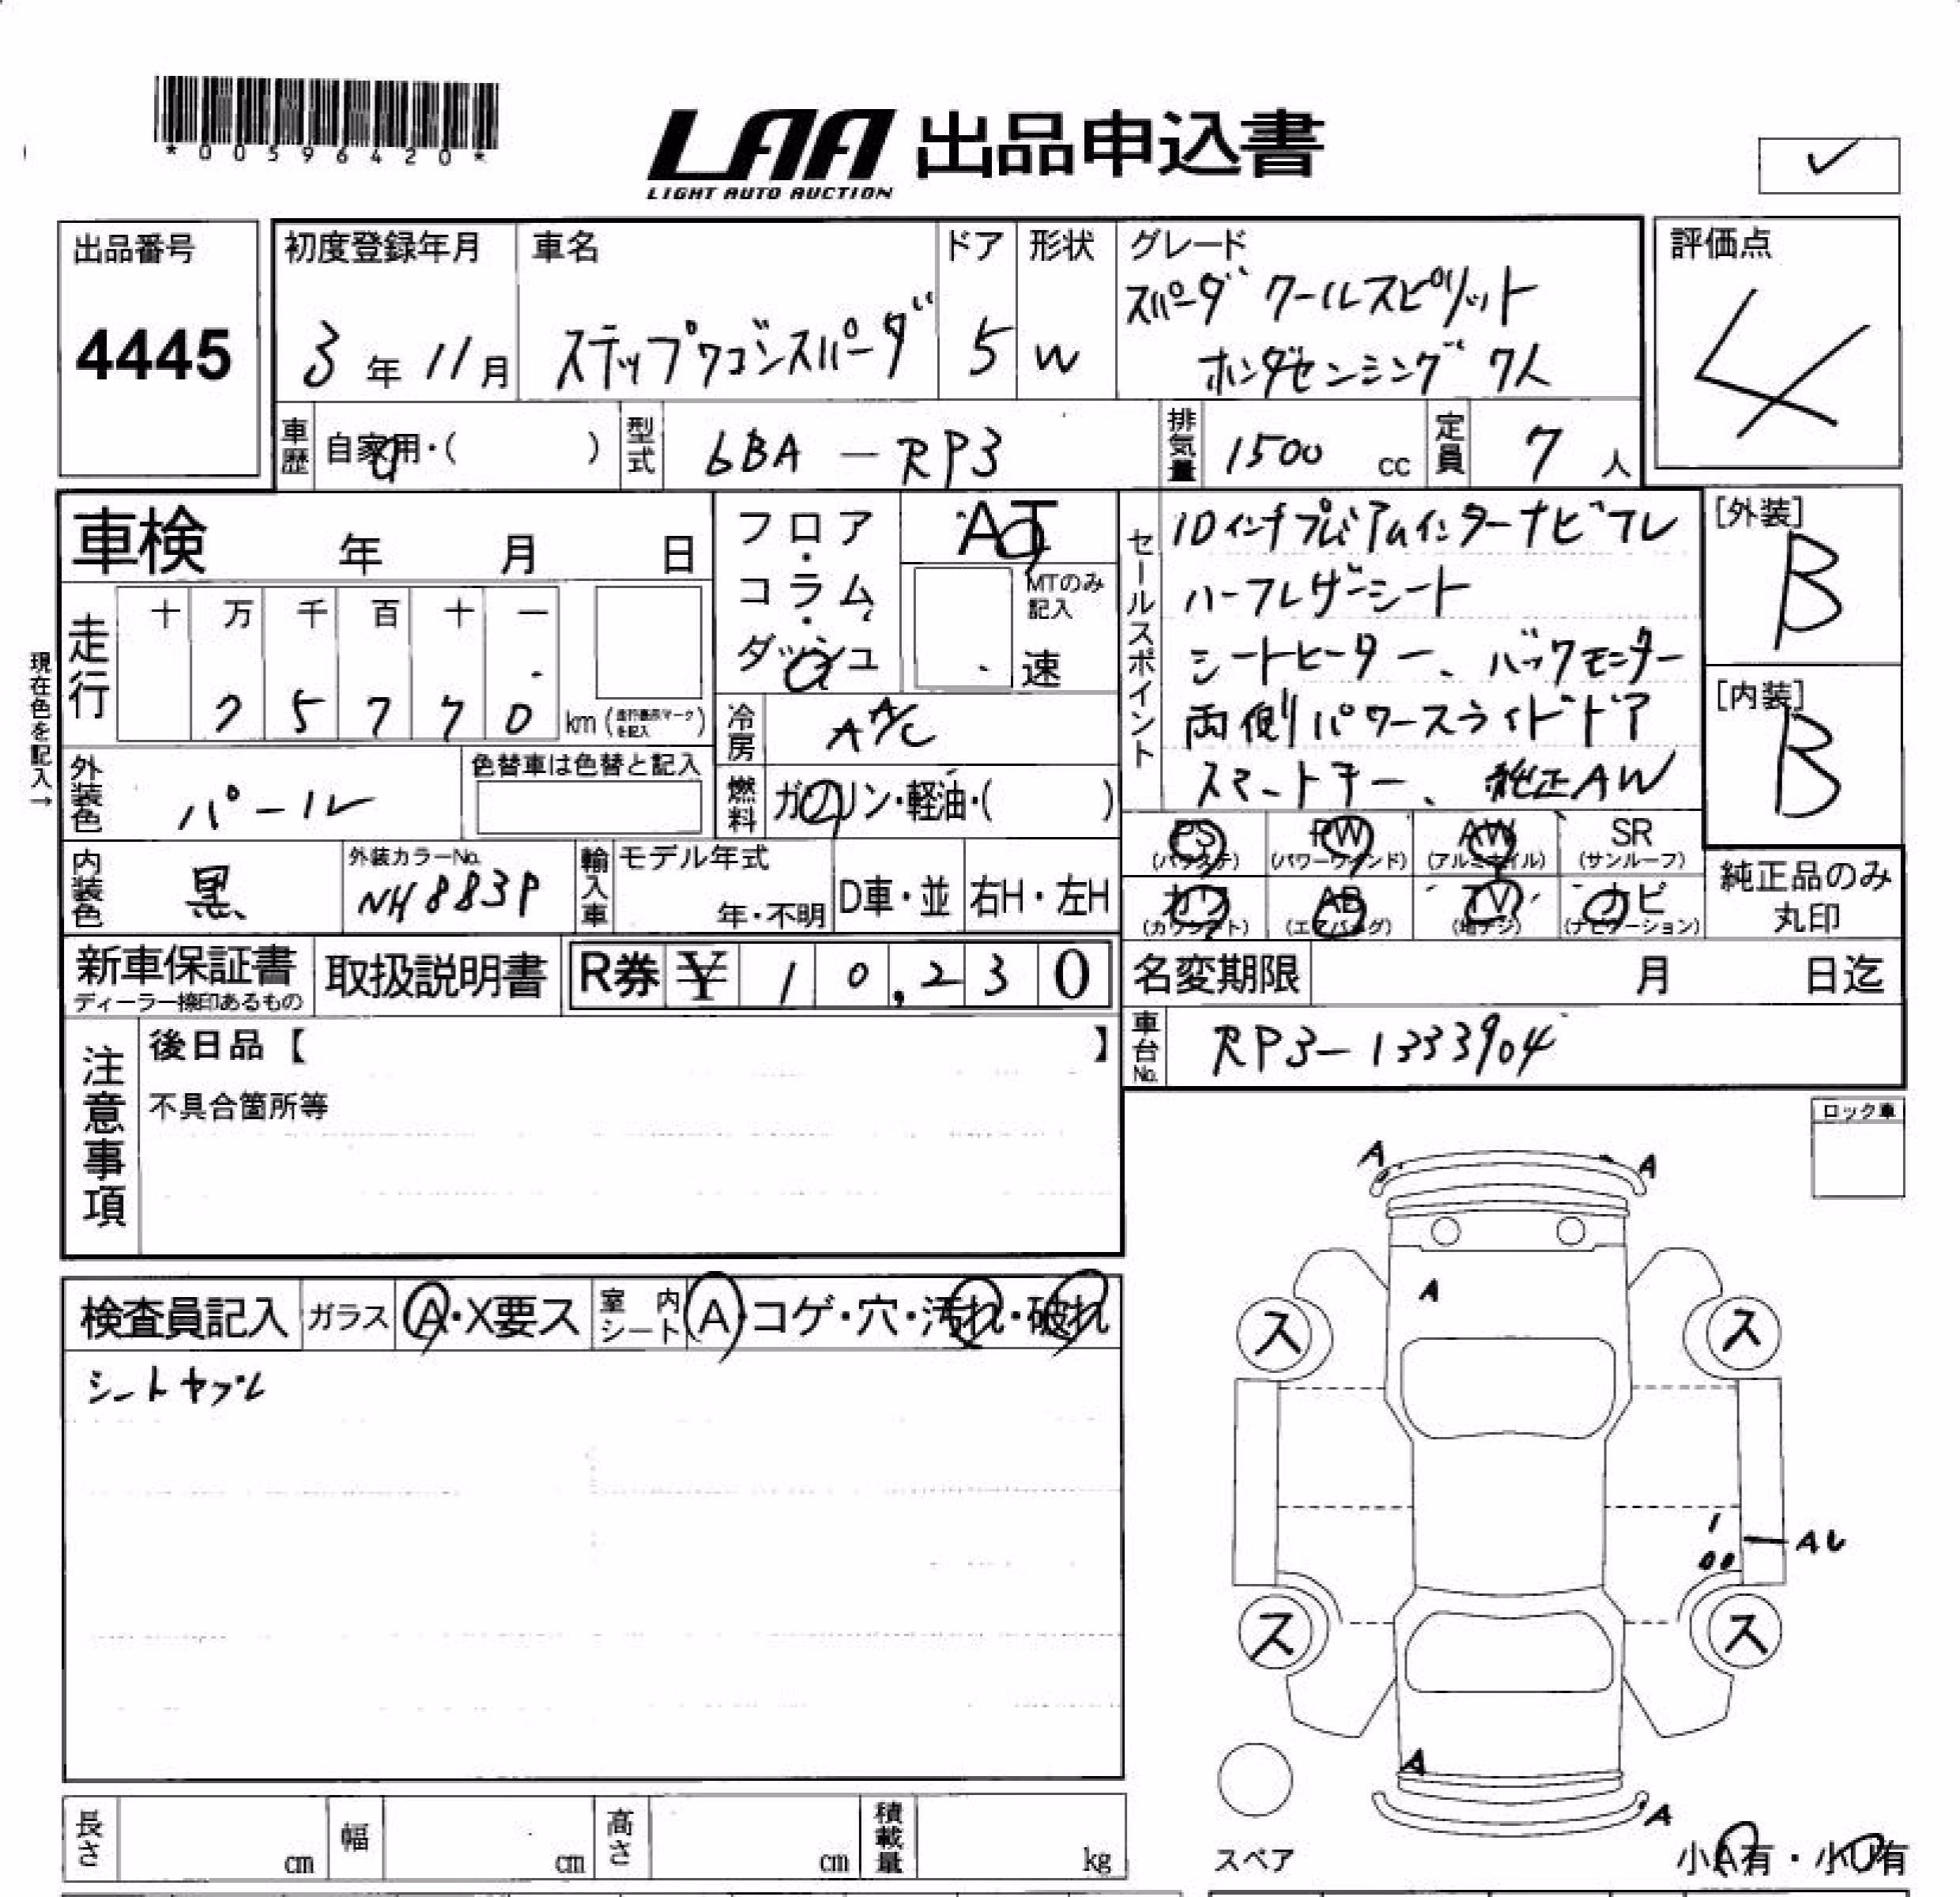 *00596420*
LAA 出品申込書
LIGHT AUTO AUCTION
✓
出品番号
4445
初度登録年月
3年11月
車名
ステップワゴンスパーダ
ドア
5
形状
W
グレード
スパーダ クールスピリット
ホンダセンシング 7人
評価点
4
車歴
自家用・( )
型式
6BA-RP3
排気量
1500 cc
定員
7人
車検 年 月 日
フロア・コラム・ダッシュ
AT
MTのみ記入
速
セールスポイント
10インチプレミアムインターナビフレ
ハーフレザーシート
シートヒーター、バックモニター
両側パワースライドドア
スマートキー、純正AW
[外装]
B
[内装]
B
現在色を記入→
走行
十 万 千 百 十 一
2 5 7 7 0 km (走行表示マークを記入)
冷房
AAC
外装色
パール
色替車は色替と記入
燃料
ガソリン・軽油・( )
PS (パワステ)
PW (パワーウインド)
AW (アルミホイル)
SR (サンルーフ)
カワ (カワシート)
AB (エアバッグ)
TV (地デジ)
ナビ (ナビゲーション)
純正品のみ丸印
内装色
黒
外装カラーNo.
NH883P
輸入車
モデル年式
年・不明
D車・並
右H・左H
新車保証書
ディーラー捺印あるもの
取扱説明書
R券 ¥ 10,230
名変期限 月 日迄
車台No.
RP3-1333904
注意事項
後日品【 】
不具合箇所等
ロック車
検査員記入
ガラス
A・X要ス
室内シート
A・コゲ・穴・汚れ・破れ
シートヤブレ
A A
A
ス ス
AU
ス ス
A
A
スペア
小A有・小U有
長さ cm
幅 cm
高さ cm
積載量 kg